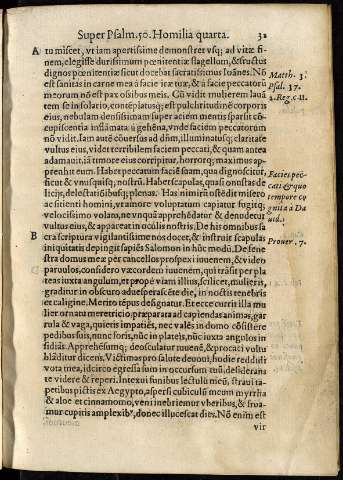 Super Psalm. 50. Homilia quarta. 32
A tu miscet, vt iam apertissime demonstret vsq; ad vitæ fi-
nem, elegisse durissimum pœnitentiæ flagellum, & fructus
dignos pœnitentiæ sicut docebat sacratissimus Ioânes. Nõ
est sanitas in carne mea à facie iræ tuæ, & à facie peccatorũ
meorum nõ est pax ossibus meis. Cũ vidit mulierem lauã
tem se in solario, contẽplatusq; est pulchritudinẽ corporis
eius, nebulam densissimam super aciem mentis sparsit cõ
cupiscentia inflãmata à gehẽna, vnde faciem peccatorum
nõ vidit. Iam autẽ cõuersus ad dñm, illuminatusq; claritate
vultus eius, videt terribilem faciem peccati, & quam antea
adamauit, iã timore eius corripitur, horrorq; maximus ap-
prehẽdit eum. Habet peccatum faciẽ suam, qua dignoscitur,
sicut & vnusquisq; nostrũ. Habet scapulas, quasi onustas de
liciis, delectationibusq; plenas. Has nimirũ ostẽdit misero
ac sitienti homini, vt amore voluptatum capiatur fugitq;
velocissimo volatu, ne vnquã apprehẽdatur & denudetur
vultus eius, & appareat in oculis nostris. De his omnibus sa
B cra scriptura vigilantissime nos docet, & instruit scapulas
iniquitatis depingit sapiẽs Salomon in hũc modũ. De fene
stra domus meæ per cancellos prospexi iuuenem, & video
paruulos, considero væcordem iuuenem, qui trãsit per pla
teas iuxta angulum, et propè viam illius, scilicet, mulieris,
graditur in obscuro aduesperascẽte die, in noctis tenebris
et caligine. Merito tẽpus designatur. Et ecce currit illa mu
lier ornatu meretricio, præparata ad capiendas animas, gar
rula & vaga, quieris impatiẽs, nec valẽs in domo cõsistere
pedibus suis, nunc foris, nũc in plateis, nũc iuxta angulos in
sidiãs. Apprehẽsumq; deosculatur iuuenẽ, & procaci vultu
blãditur dicẽs. Victimas pro salute deuoui, hodie reddidi
vota mea, idcirco egressa sum in occursum tuũ, desiderans
te videre & reperi. Intexui funibus lectulũ meũ, straui ta-
petibus pictis ex Aegypto, aspersi cubiculũ meum myrrha
& aloe et cinnamomo, veni inebriemur vberibus, & frua-
mur cupitis amplexibꝰ, donec illucescat dies. Nõ enim est
vir
Matth. 3.
Psal. 37.
2. Reg. c. 11.
Facies pec-
cati & quo
tempore co
gnita à Da
uid.
Prouer. 7.